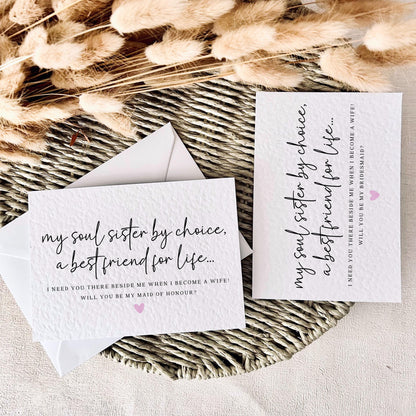 my soul sister by choice,
a best friend for life...
I NEED YOU THERE BESIDE ME WHEN I BECOME A WIFE!
WILL YOU BE MY MAID OF HONOUR?
my soul sister by choice,
a best friend for life...
I NEED YOU THERE BESIDE ME WHEN I BECOME A WIFE!
WILL YOU BE MY BRIDESMAID?